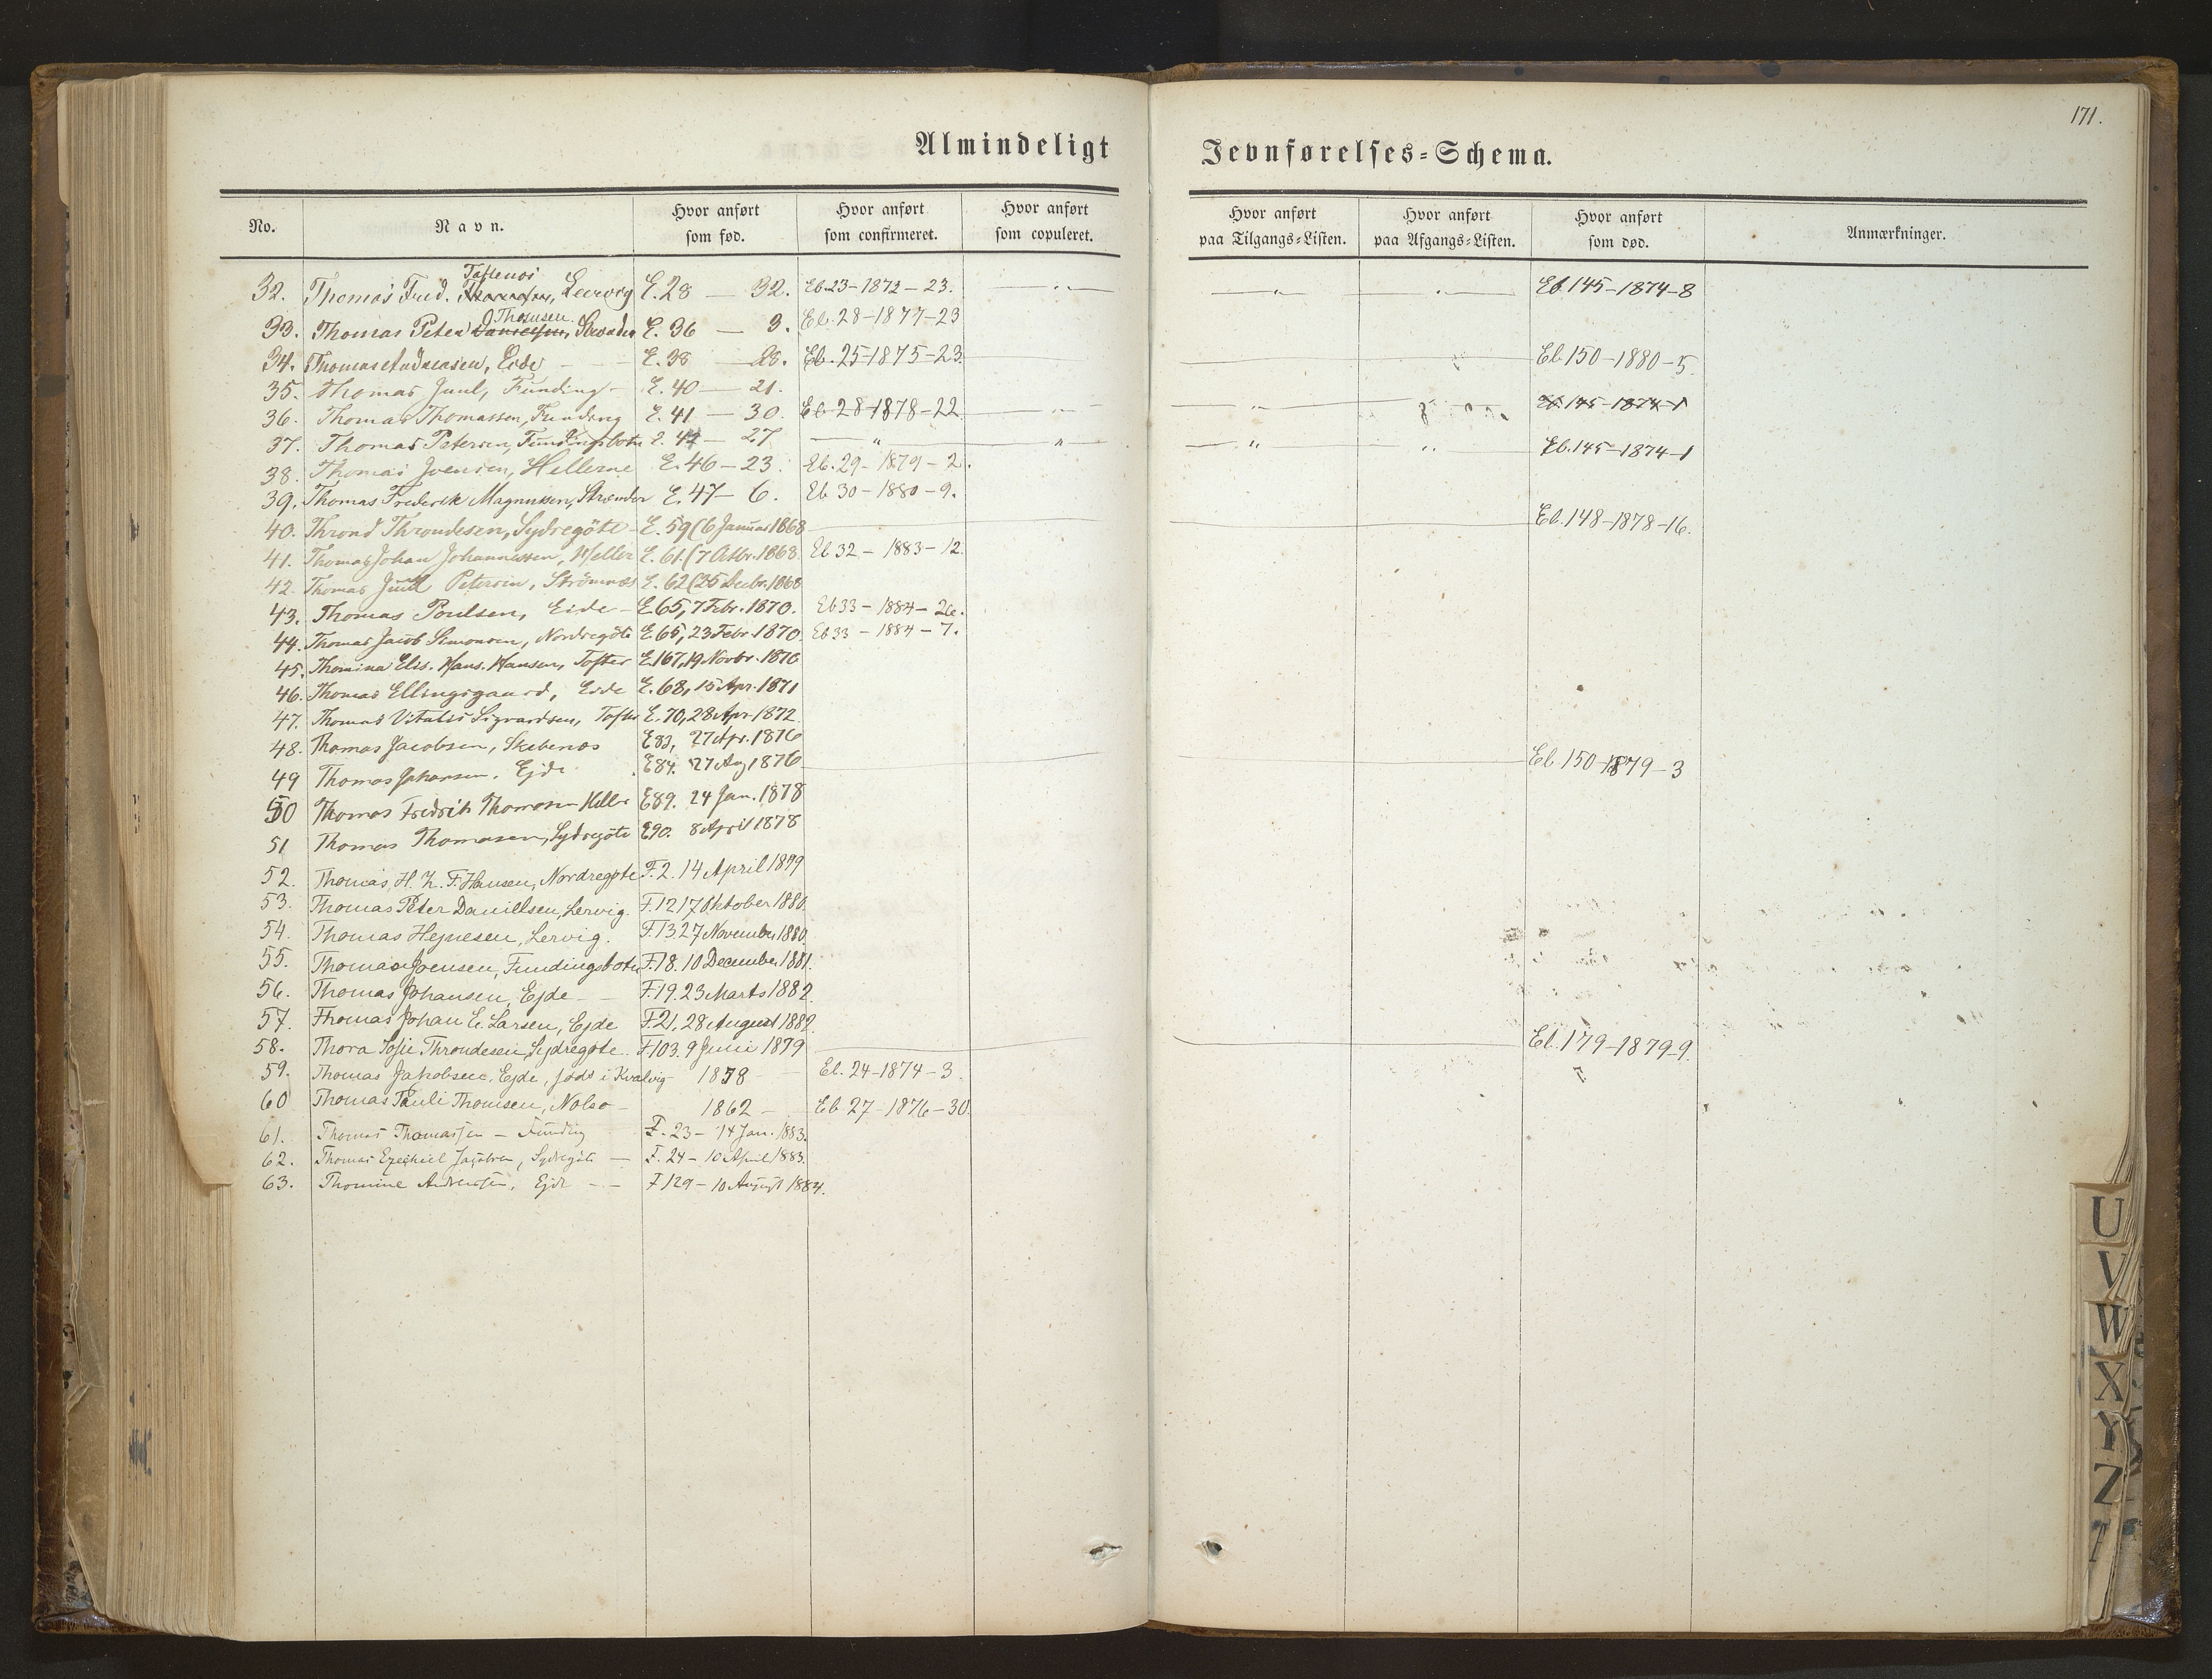 171.
Almindeligt Jevnførelses-Schema.
No. Navn. Hvor anført som fød. Hvor anført som confirmeret. Hvor anført som copuleret. Hvor anført paa Tilgangs-Listen. Hvor anført paa Afgangs-Listen. Hvor anført som død. Anmærkninger.
32. Thomas Fred. Leervig E. 28 — 32. Eb. 23-1872-23. — " — — " — " — Eb. 145-1874-8
33. Thomas Peter Danielsen, Thomsen E. 36 — 3. Eb. 28-1877-23
34. Thomas Andreasen, Eide E. 38 — 28. Eb. 25-1875-23. Eb 150-1880-5.
35. Thomas Juul, Funding E. 40 — 21.
36. Thomas Thomassen, Funding E. 41 — 30. Eb 28-1878-22 — " — — " — Eb. 145-1874-1
37. Thomas Petersen, Fundingsbotn E. 42 — 27 — " — " — — " " — Eb. 145-1874-1
38. Thomas Joensen, Hellerne E. 46 — 23. Eb. 29-1879-2.
39. Thomas Frederik Magnussen, Strænder E. 47 — 6. Eb 30-1880-9.
40. Thrond Throndesen, Sydregöte E. 59 (6 Januar 1868 Eb. 148-1878-16.
41. Thomas Johan Johannessen, Heller E. 61. (7 Octbr. 1868. Eb 32 - 1883-12.
42. Thomas Juul Petersen, Strömnæs E. 62 (25 Decbr. 1868
43. Thomas Poulsen, Eide E 65, 7 Febr. 1870. Eb 33 - 1884-26.
44. Thomas Jacob Simonsen, Nordregöte E 65, 23 Febr. 1870. Eb 33 - 1884-7.
45. Thomina Elis. Hans. Hansen, Tofter E. 167, 19 Novbr. 1870
46. Thomas Ellingsgaard, Eide E. 68, 15 Apr. 1871
47. Thomas Vitalis Sigvardsen, Tofte E. 70, 28 Apr. 1872.
48. Thomas Jacobsen, Skibenæs E 83, 27 Apr. 1876
49 Thomas Johansen, Ejde E 84. 27 Aug 1876 Eb 150-1879-3
50 Thomas Fredrik Thomsen Heller E 89. 24 Jan. 1878
51 Thomas Thomasen, Sydregöte E 90. 8 April 1878
52. Thomas, H. Z. F. Hansen, Nordregøte F. 2. 14 April 1879
53. Thomas Peter Danielsen, Lervig. F. 12 17 Oktober 1880.
54. Thomas Hejnesen, Lervig. F. 13 27 November 1880
55. Thomas Joensen, Fundingsbotn F. 18. 10 December 1881.
56. Thomas Johansen, Ejde F. 19. 23 Marts 1882.
57. Thomas Johan E. Larsen, Ejde F. 21. 28 August 1882.
58. Thora Sofie Throndesen, Sydregøte. F. 103. 9 Juni 1879 Eb. 179-1879-9
59. Thomas Jakobsen, Ejde, født i Kvalvig 1858 Eb. 24-1874-3.
60 Thomas Pauli Thomsen, Nolsø 1862 — Eb 27-1876-30.
61. Thomas Thomassen — Funding F. 23 - 14 Jan. 1883.
62. Thomas Ezechiel Jacobsen, Sydregöte — F. 24 - 10 April 1883.
63. Thomine Andreasen, Ejde — F 129 - 10 August 1884.
U
V
W
X
Y
Z